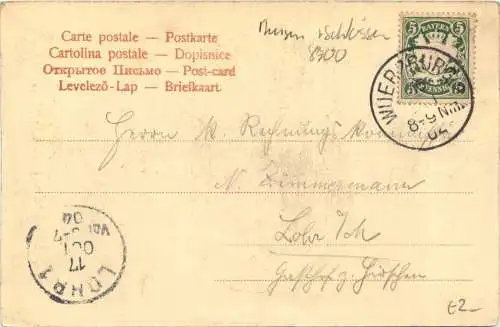 Carte postale — Postkarte
Cartolina postale — Dopisnice
Открытое Письмо — Post-card
Levelező-Lap — Briefkaart
8700
5 BAYERN 5
PFENNIG
WUERZBURG
8-9 Nm.
04
Herrn K. Rechnungs
N. Zimmermann
Lohr
Gasthof z. Hirschen
LOHR
17
OCT
04
€2–